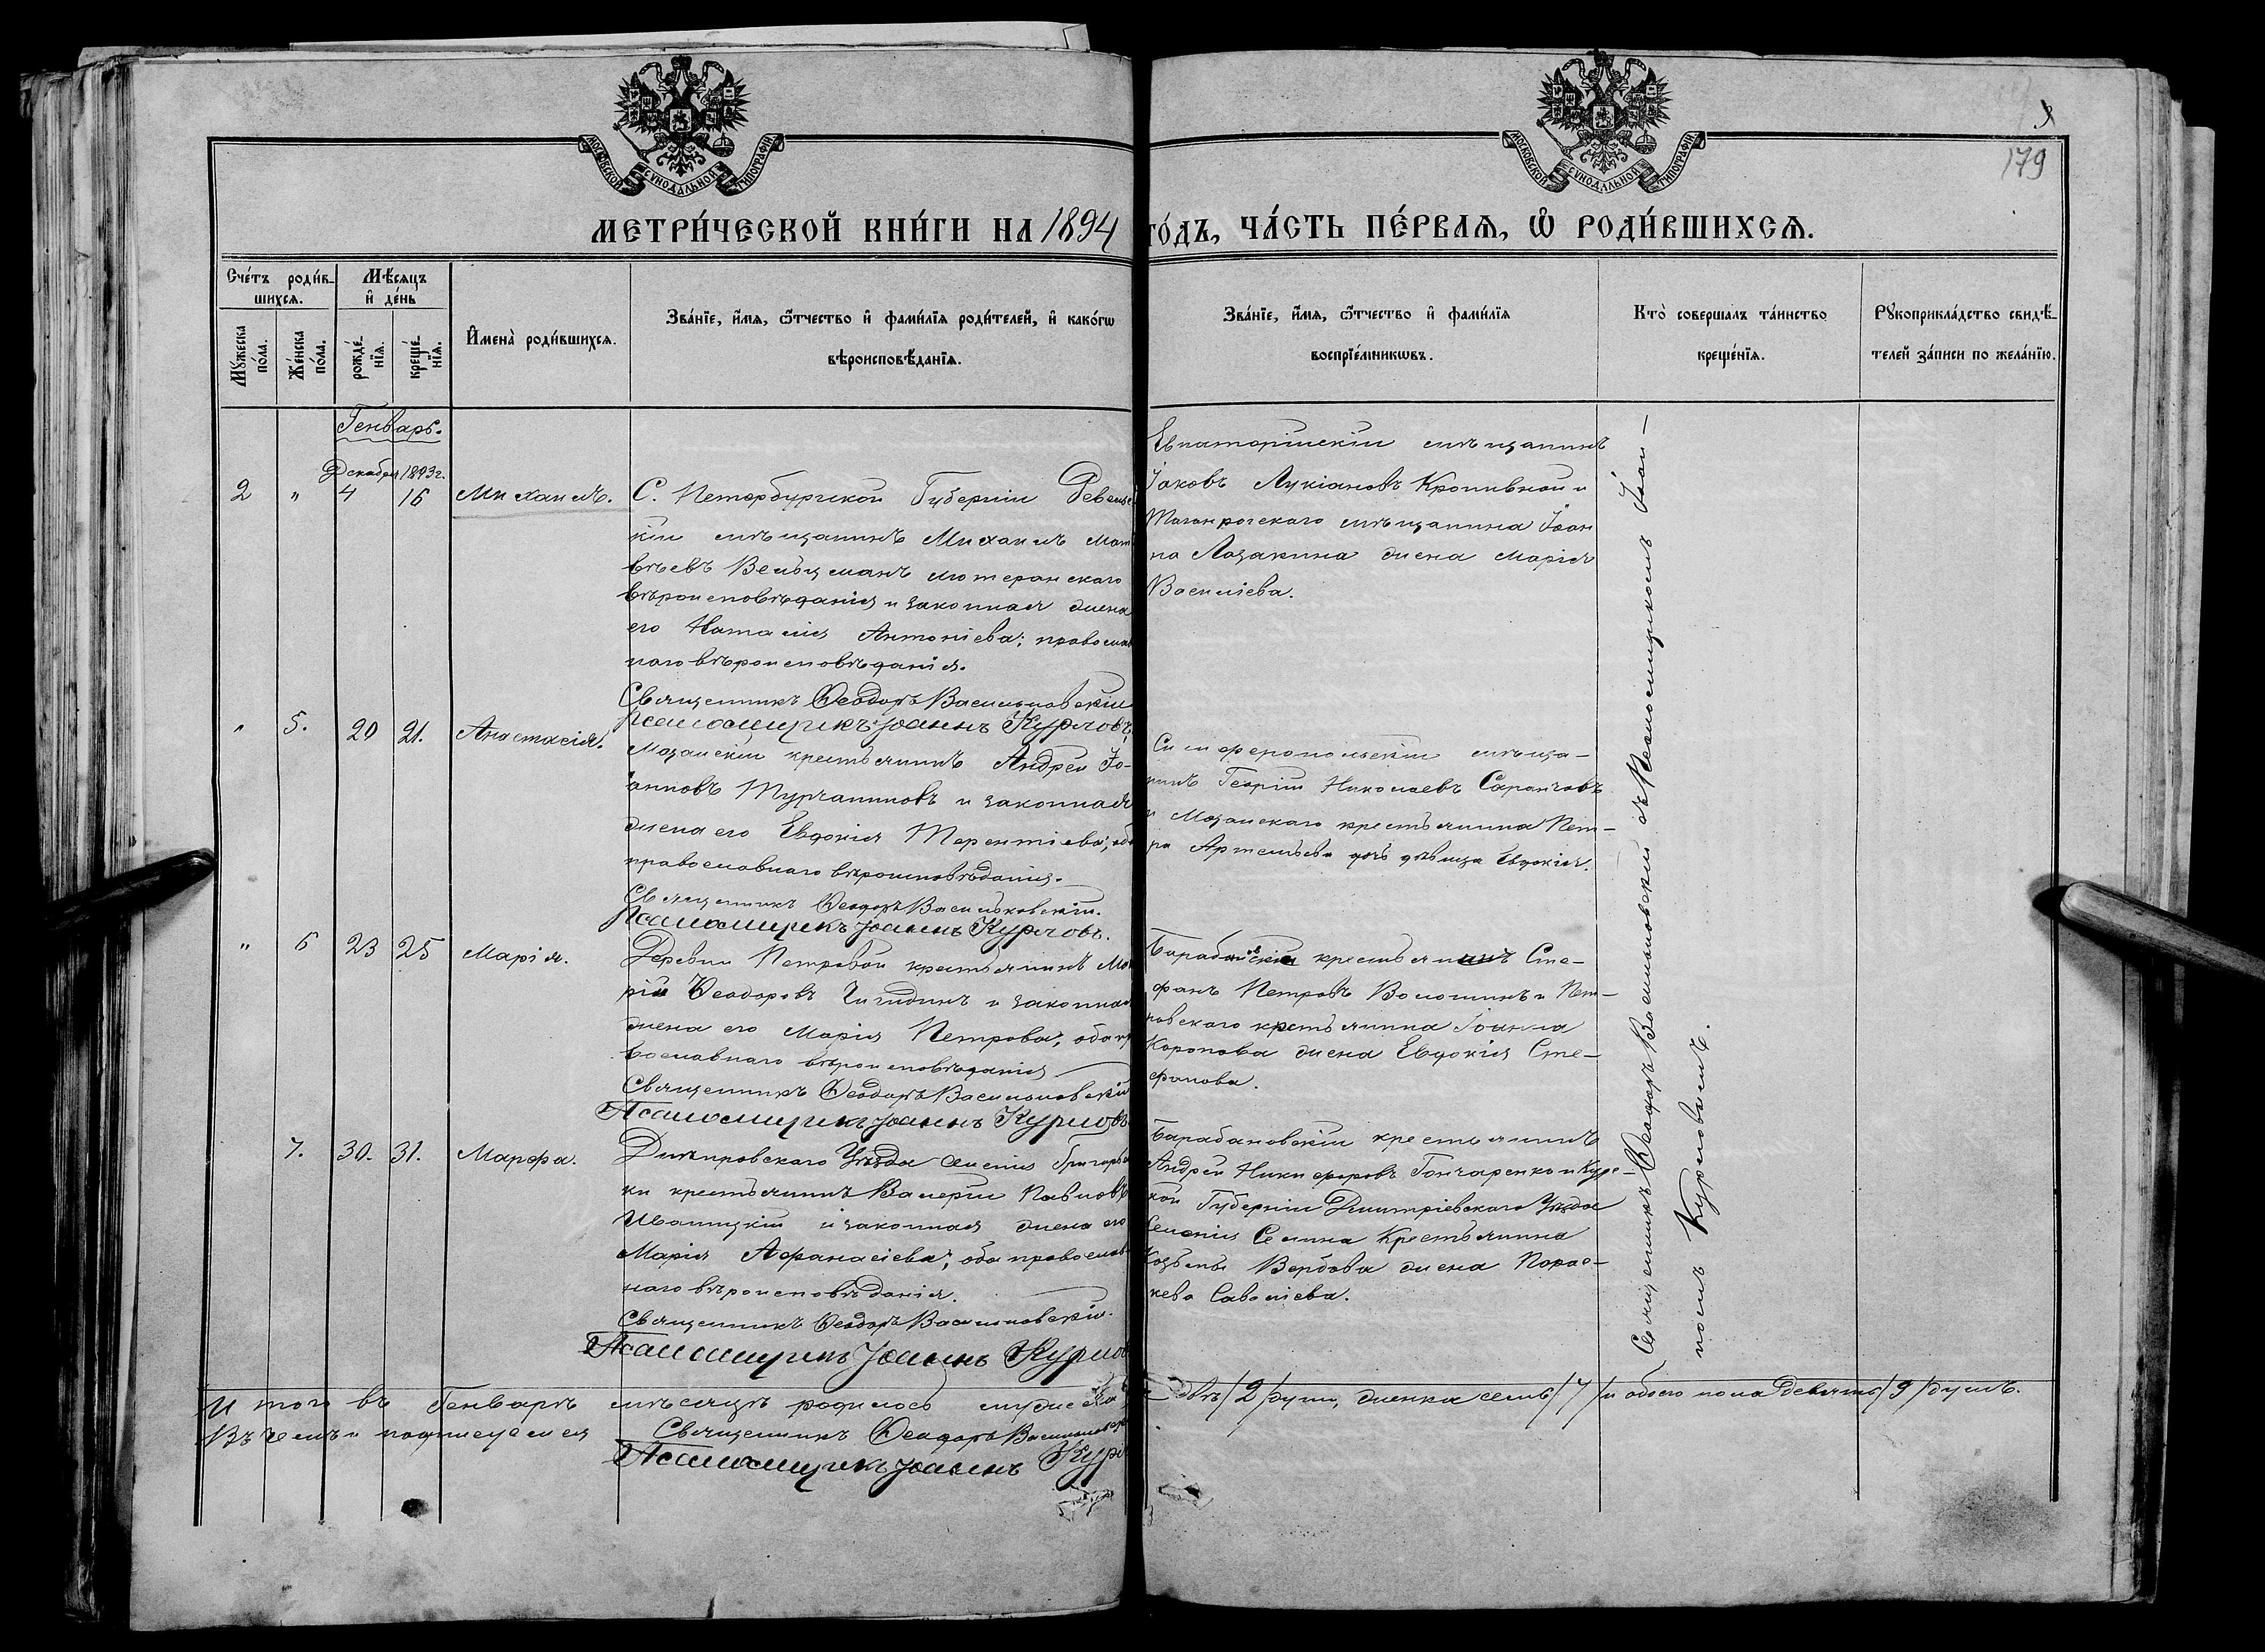 179
МОСКОВСКОЙ СѴНОДАЛЬНОЙ ТИПОГРАФІИ
МОСКОВСКОЙ СѴНОДАЛЬНОЙ ТИПОГРАФІИ
МЕТРИ́ЧЕСКОЙ КНИ́ГИ НА 1894 ГО́ДЪ, ЧА́СТЬ ПЕ́РВАѦ, Ѡ РОДИ́ВШИХСѦ.
Сче́тъ роди́вшихсѧ.
Мꙋжеска по́ла.
Же́нска по́ла.
Мѣ́сѧцъ и҆ де́нь
рожде́нїѧ.
креще́нїѧ.
И҆мена̀ роди́вшихсѧ.
Зва́нїе, и҆́мѧ, ѻ҆́тчество и҆ фами́лїѧ роди́телей, и҆ како́гѡ
вѣроисповѣ́данїѧ.
Зва́нїе, и҆́мѧ, ѻ҆́тчество и҆ фами́лїѧ
воспрїе́мникѡвъ.
Кто̀ соверша́лъ та́инство
креще́нїѧ.
Рꙋкоприкла́дство свидѣ́-
телей за́писи по жела́нїю.
Генварь.
Декабря 1893 г.
2 " 4 16 Михаилъ.
С. Петербургской Губерніи
кій мѣщанинъ Михаилъ Мат
вѣевъ Вельцманъ лютеранскаго
вѣроисповѣданія и законная жена
его Наталія Антоніева; православ
наго вѣроисповѣданія.
Священникъ Ѳеодоръ Васильковскій
Псаломщикъ Іоаннъ Курловъ
Евпаторійскій мѣщанинъ
Іаковъ Лукіановъ Кропивной и
Таганрогскаго мѣщанина Іоан
на Лозакина жена Марія
Василіева.
" 5. 20 21. Анастасія.
Мазанскій крестьянинъ Андрей Іо-
анновъ Турчаниновъ и законная
жена его Евдокія Терентіева; оба
православнаго вѣроисповѣданія.
Священникъ Ѳеодоръ Васильковскій.
Псаломщикъ Іоаннъ Курловъ.
Симферопольскій мѣща-
нинъ Георгій Николаевъ Саранчовъ
и Мазанскаго крестьянина Пет-
ра Артемьева дочь дѣвица Евдокія.
" 6 23 25 Марія.
Деревни Петровой крестьянинъ Ма
рій Ѳеодоровъ Чигидинъ и законная
жена его Марія Петрова; оба пра
вославнаго вѣроисповѣданія
Священникъ Ѳеодоръ Васильковскій
Псаломщикъ Іоаннъ Курловъ
Барабановскій крестьянинъ Сте-
фанъ Петровъ Волошинъ и Пет-
ровскаго крестьянина Іоанна
Коропова жена Евдокія Сте-
фанова.
7. 30. 31. Марфа.
Днѣпровскаго Уѣзда селенія Григорьев
ки крестьянинъ Валерій Павловъ
Иваницкій и законная жена его
Марія Афанасіева; оба православ-
наго вѣроисповѣданія.
Священникъ Ѳеодоръ Васильковскій.
Псаломщикъ Іоаннъ Курлов
Барабановскій крестьянинъ
Андрей Никифоровъ Гончаренко и Курс-
кой Губерніи Дмитріевскаго Уѣзда
Селенія Селина Крестьянина
Козьмы Вербова жена Парас-
кева Савеліева.
Священникъ Ѳеодоръ Васильковскій съ Псаломщикомъ Іоан-
номъ Курловымъ.
Итого въ Генварѣ мѣсяцѣ родилось мужеска двѣ /2/ души, женска семь /7/ и обоего пола девять /9/ душъ.
Въ чемъ и подписуемся Священникъ Ѳеодоръ Васильковскій
Псаломщикъ Іоаннъ Курл